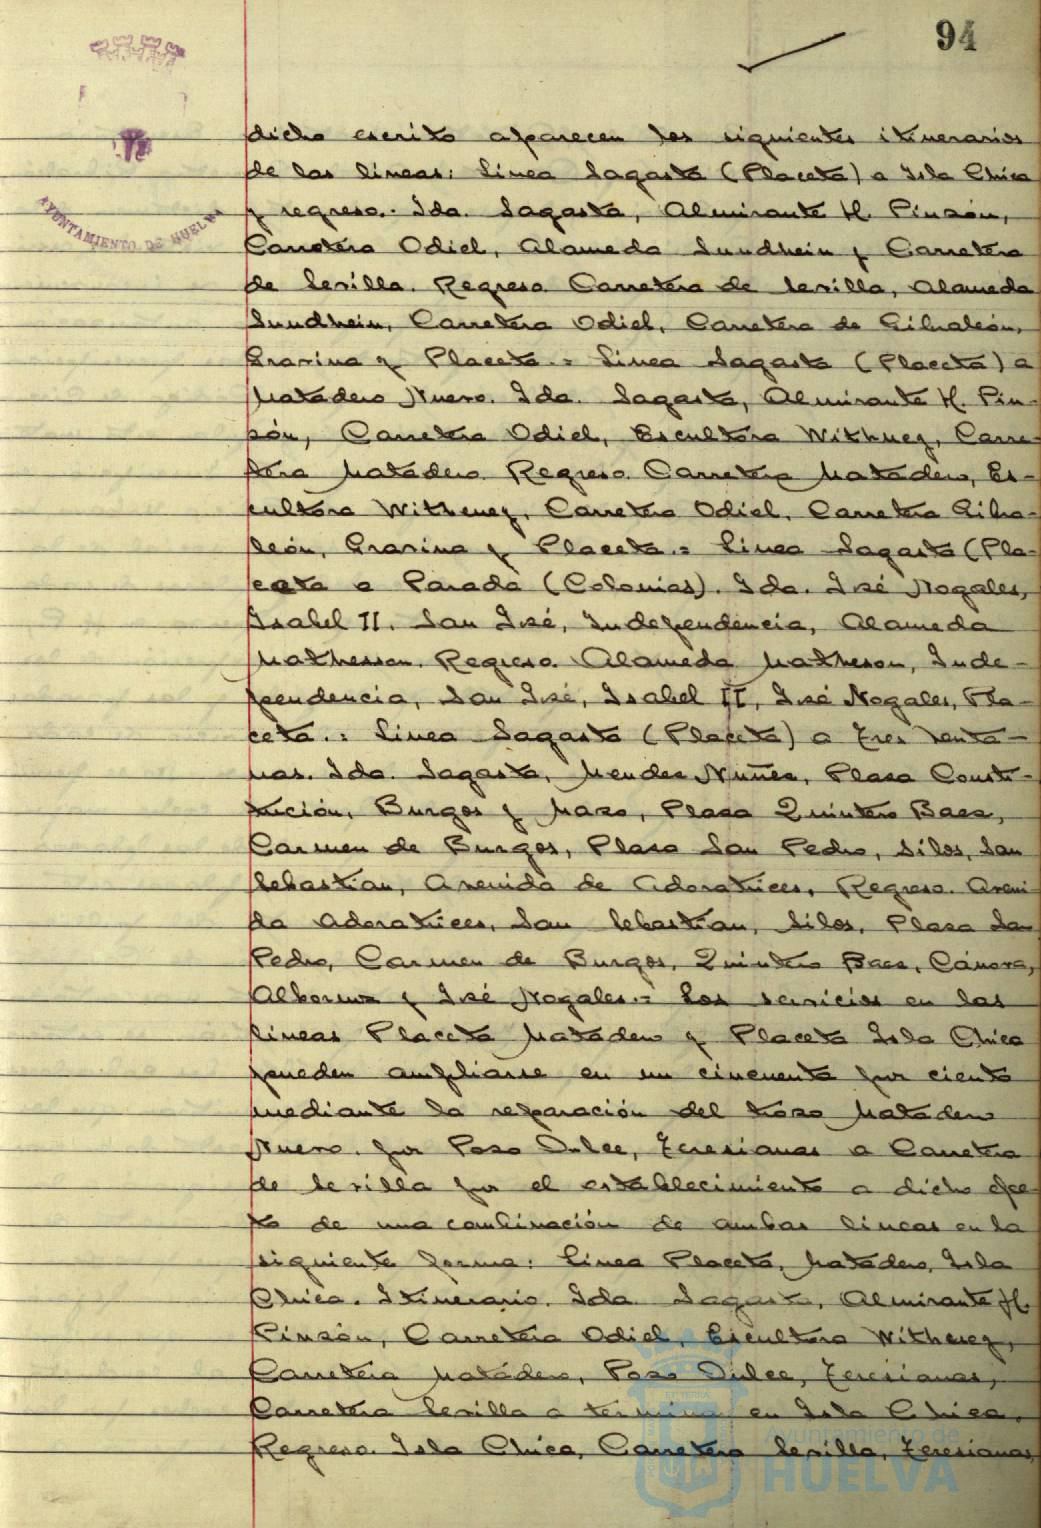 94
AYUNTAMIENTO DE HUELVA
dicho escrito aparecen los siguientes itinerarios
de las lineas: Linea Sagasta (Placeta) a Isla Chica
y regreso. Ida. Sagasta, Almirante H. Pinzón,
Carretera Odiel, Alameda Sundhein y Carretera
de Sevilla. Regreso. Carretera de Sevilla, Alameda
Sundhein, Carretera Odiel, Carretera de Gibraleón,
Gravina y Placeta.= Linea Sagasta (Placeta) a
Matadero Nuevo. Ida. Sagasta, Almirante H. Pin-
zón, Carretera Odiel, Escultora Withney, Carre-
tera Matadero. Regreso. Carretera Matadero, Es-
cultora Witheney, Carretera Odiel, Carretera Gibra-
león, Gravina y Placeta.= Linea Sagasta (Pla-
ceta a Parada (Colonias). Ida. José Nogales,
Isabel II, San José, Independencia, Alameda
Mathesson. Regreso. Alameda Matheson, Inde-
pendencia, San José, Isabel II, José Nogales, Pla-
ceta.= Linea Sagasta (Placeta) a Tres Venta-
nas. Ida. Sagasta, Mendez Nuñez, Plaza Consti-
tución, Burgos y Mazo, Plaza Quintero Baez,
Carmen de Burgos, Plaza San Pedro, Silos, San
Sebastian, Avenida de Adoratrices, Regreso. Aveni
da Adoratrices, San Sebastian, Silos, Plaza San
Pedro, Carmen de Burgos, Quintero Baez, Cánova,
Albornoz y José Nogales.= Los servicios en las
lineas Placeta Matadero y Placeta Isla Chica
pueden ampliarse en un cincuenta por ciento
mediante la reparación del trozo Matadero
Nuevo. por Pozo Dulce, Teresianas a Carretera
de Sevilla por el establecimiento a dicho efec
to de una combinación de ambas lineas en la
siguiente forma: Linea Placeta, Matadero, Isla
Chica. Itinerario. Ida Sagasta, Almirante H.
Pinzón, Carretera Odiel, Escultora Witheney,
Carretera Matadero, Pozo Dulce, Teresianas,
Carretera Sevilla a termino en Isla Chica.
Regreso. Isla Chica, Carretera Sevilla, Teresianas,
Ayuntamiento de
HUELVA